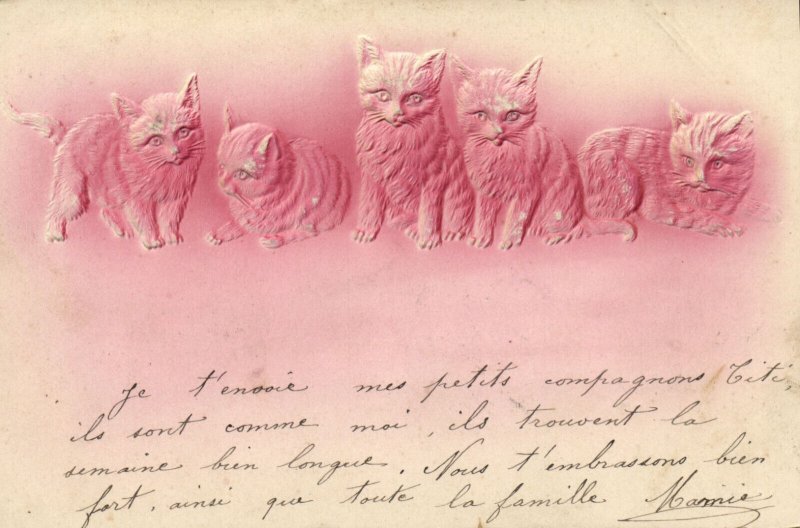 Je t'envoie mes petits compagnons Titi,
ils sont comme moi, ils trouvent la
semaine bien longue. Nous t'embrassons bien
fort, ainsi que toute la famille Mamie